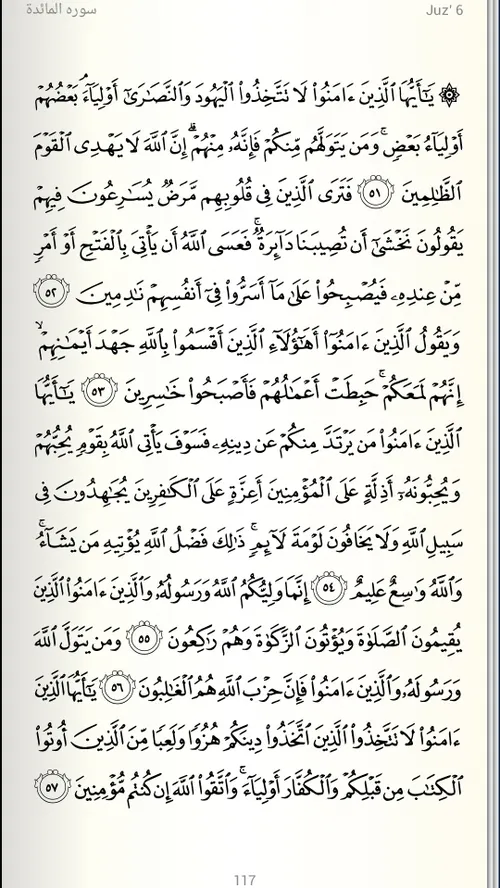 سورة المائدة
Juz' 6
۞ يَـٰٓأَيُّهَا ٱلَّذِينَ ءَامَنُوا۟ لَا تَتَّخِذُوا۟ ٱلْيَهُودَ وَٱلنَّصَـٰرَىٰٓ أَوْلِيَآءَ ۘ بَعْضُهُمْ
أَوْلِيَآءُ بَعْضٍ ۚ وَمَن يَتَوَلَّهُم مِّنكُمْ فَإِنَّهُۥ مِنْهُمْ ۗ إِنَّ ٱللَّهَ لَا يَهْدِى ٱلْقَوْمَ
ٱلظَّـٰلِمِينَ ٥١ فَتَرَى ٱلَّذِينَ فِى قُلُوبِهِم مَّرَضٌ يُسَـٰرِعُونَ فِيهِمْ
يَقُولُونَ نَخْشَىٰٓ أَن تُصِيبَنَا دَآئِرَةٌ ۚ فَعَسَى ٱللَّهُ أَن يَأْتِىَ بِٱلْفَتْحِ أَوْ أَمْرٍ
مِّنْ عِندِهِۦ فَيُصْبِحُوا۟ عَلَىٰ مَآ أَسَرُّوا۟ فِىٓ أَنفُسِهِمْ نَـٰدِمِينَ ٥٢
وَيَقُولُ ٱلَّذِينَ ءَامَنُوٓا۟ أَهَـٰٓؤُلَآءِ ٱلَّذِينَ أَقْسَمُوا۟ بِٱللَّهِ جَهْدَ أَيْمَـٰنِهِمْ ۙ
إِنَّهُمْ لَمَعَكُمْ ۚ حَبِطَتْ أَعْمَـٰلُهُمْ فَأَصْبَحُوا۟ خَـٰسِرِينَ ٥٣ يَـٰٓأَيُّهَا
ٱلَّذِينَ ءَامَنُوا۟ مَن يَرْتَدَّ مِنكُمْ عَن دِينِهِۦ فَسَوْفَ يَأْتِى ٱللَّهُ بِقَوْمٍ يُحِبُّهُمْ
وَيُحِبُّونَهُۥٓ أَذِلَّةٍ عَلَى ٱلْمُؤْمِنِينَ أَعِزَّةٍ عَلَى ٱلْكَـٰفِرِينَ يُجَـٰهِدُونَ فِى
سَبِيلِ ٱللَّهِ وَلَا يَخَافُونَ لَوْمَةَ لَآئِمٍ ۚ ذَٰلِكَ فَضْلُ ٱللَّهِ يُؤْتِيهِ مَن يَشَآءُ ۚ
وَٱللَّهُ وَٰسِعٌ عَلِيمٌ ٥٤ إِنَّمَا وَلِيُّكُمُ ٱللَّهُ وَرَسُولُهُۥ وَٱلَّذِينَ ءَامَنُوا۟ ٱلَّذِينَ
يُقِيمُونَ ٱلصَّلَوٰةَ وَيُؤْتُونَ ٱلزَّكَوٰةَ وَهُمْ رَٰكِعُونَ ٥٥ وَمَن يَتَوَلَّ ٱللَّهَ
وَرَسُولَهُۥ وَٱلَّذِينَ ءَامَنُوا۟ فَإِنَّ حِزْبَ ٱللَّهِ هُمُ ٱلْغَـٰلِبُونَ ٥٦ يَـٰٓأَيُّهَا ٱلَّذِينَ
ءَامَنُوا۟ لَا تَتَّخِذُوا۟ ٱلَّذِينَ ٱتَّخَذُوا۟ دِينَكُمْ هُزُوًا وَلَعِبًا مِّنَ ٱلَّذِينَ أُوتُوا۟
ٱلْكِتَـٰبَ مِن قَبْلِكُمْ وَٱلْكُفَّارَ أَوْلِيَآءَ ۚ وَٱتَّقُوا۟ ٱللَّهَ إِن كُنتُم مُّؤْمِنِينَ ٥٧
117